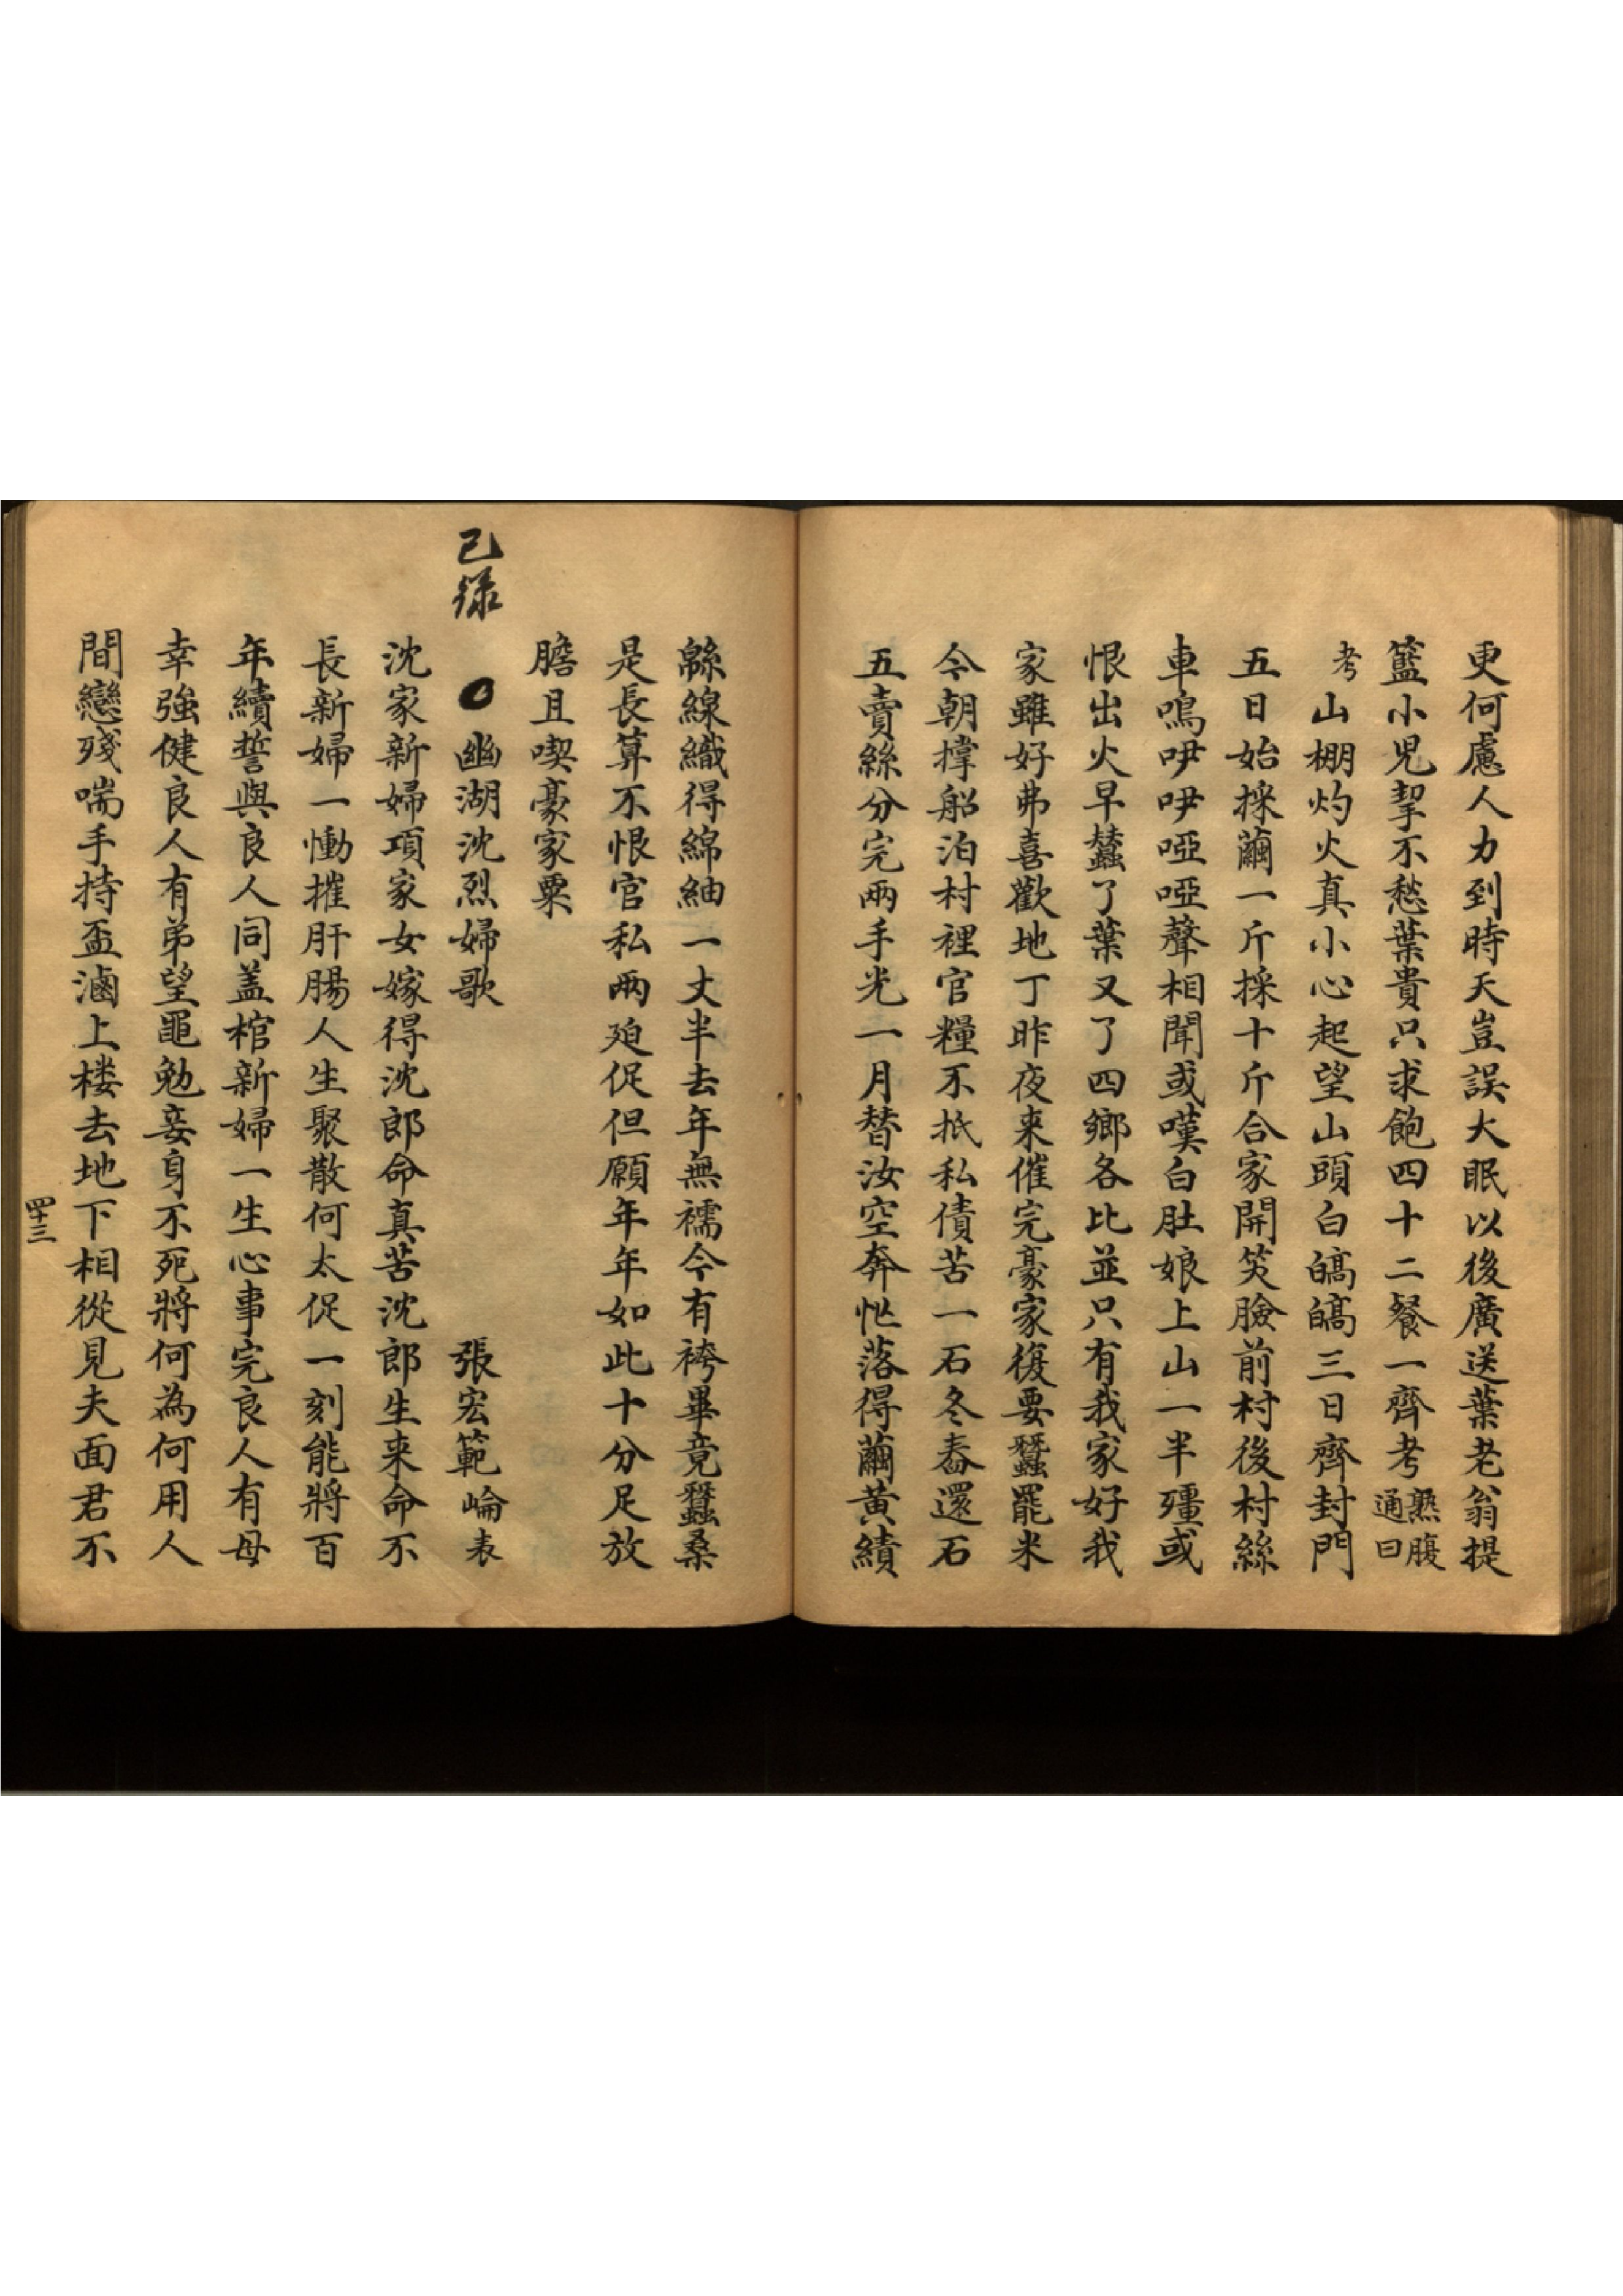 更何慮人力到時天豈誤大眠以後廣送葉老翁提
籃小兒挈不愁葉貴只求飽四十二餐一齊考熟腹通曰
考山棚灼火真小心起望山頭白皜皜三日齊封門
五日始採繭一斤採十斤合家開笑臉前村後村絲
車鳴咿咿啞啞聲相聞或嘆白肚娘上山一半殭或
恨出火早蠶了葉又了四鄉各比並只有我家好我
家雖好弗喜歡地丁昨夜來催完豪家復要蠶罷米
今朝撐船泊村裡官糧不抵私債苦一石冬舂還石
五賣絲分完兩手光一月替汝空奔忙落得繭黃績
緜線織得綿紬一丈半去年無襦今有袴畢竟蠶桑
是長算不恨官私兩廹促但願年年如此十分足放
膽且喫豪家粟
已録
幽湖沈烈婦歌 張宏範崘表
沈家新婦項家女嫁得沈郎命真苦沈郎生来命不
長新婦一慟摧肝腸人生聚散何太促一刻能將百
年續誓與良人同蓋棺新婦一生心事完良人有母
幸強健良人有弟望黽勉妾身不死將何為何用人
間戀殘喘手持盃滷上楼去地下相從見夫面君不
四十三